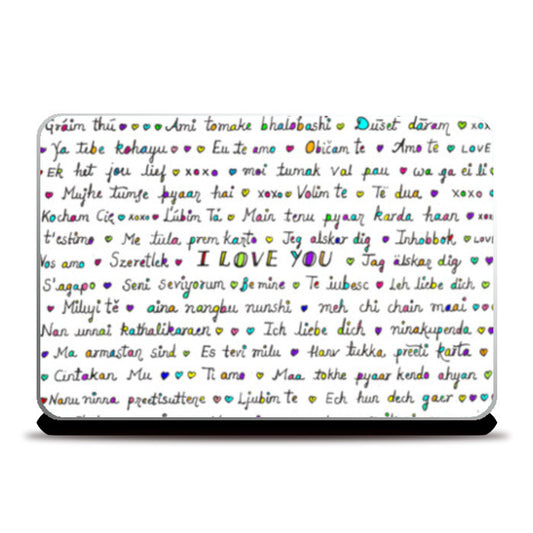 Gráim thú Ami tomake bhalobashi Duset daram xox
Ya tebe kohayu Eu te amo Običam te Amo te LOVE
EK het jou lief xoxo moi tumak val pau wa ga ei li
Mujhe tumse pyaar hai xoxo Volim te Të dua xoxo
Kocham Cię xoxo L'úbim Ťa Main tenu pyaar karda haan xox
t'estimo Me tula prem karto Jeg elskar dig Inhobbok LOVE
Vos amo Szeretlek I LOVE YOU Jag älskar dig
S'agapo Seni seviyorum Be mine Te iubesc Leh liebe dich
Miluji tě aina nangbu nunshi meh chi chain maai
Nan unnai kathalikaraen Ich liebe dich ninakupenda
Ma armastan sind Es tevi milu Hanv tukka preeti karta
Cintakan Mu Ti amo Maa tokhe pyaar kendo ahyan
Nanu ninna preetisuttene Ljubim te Ech hun dech gaer